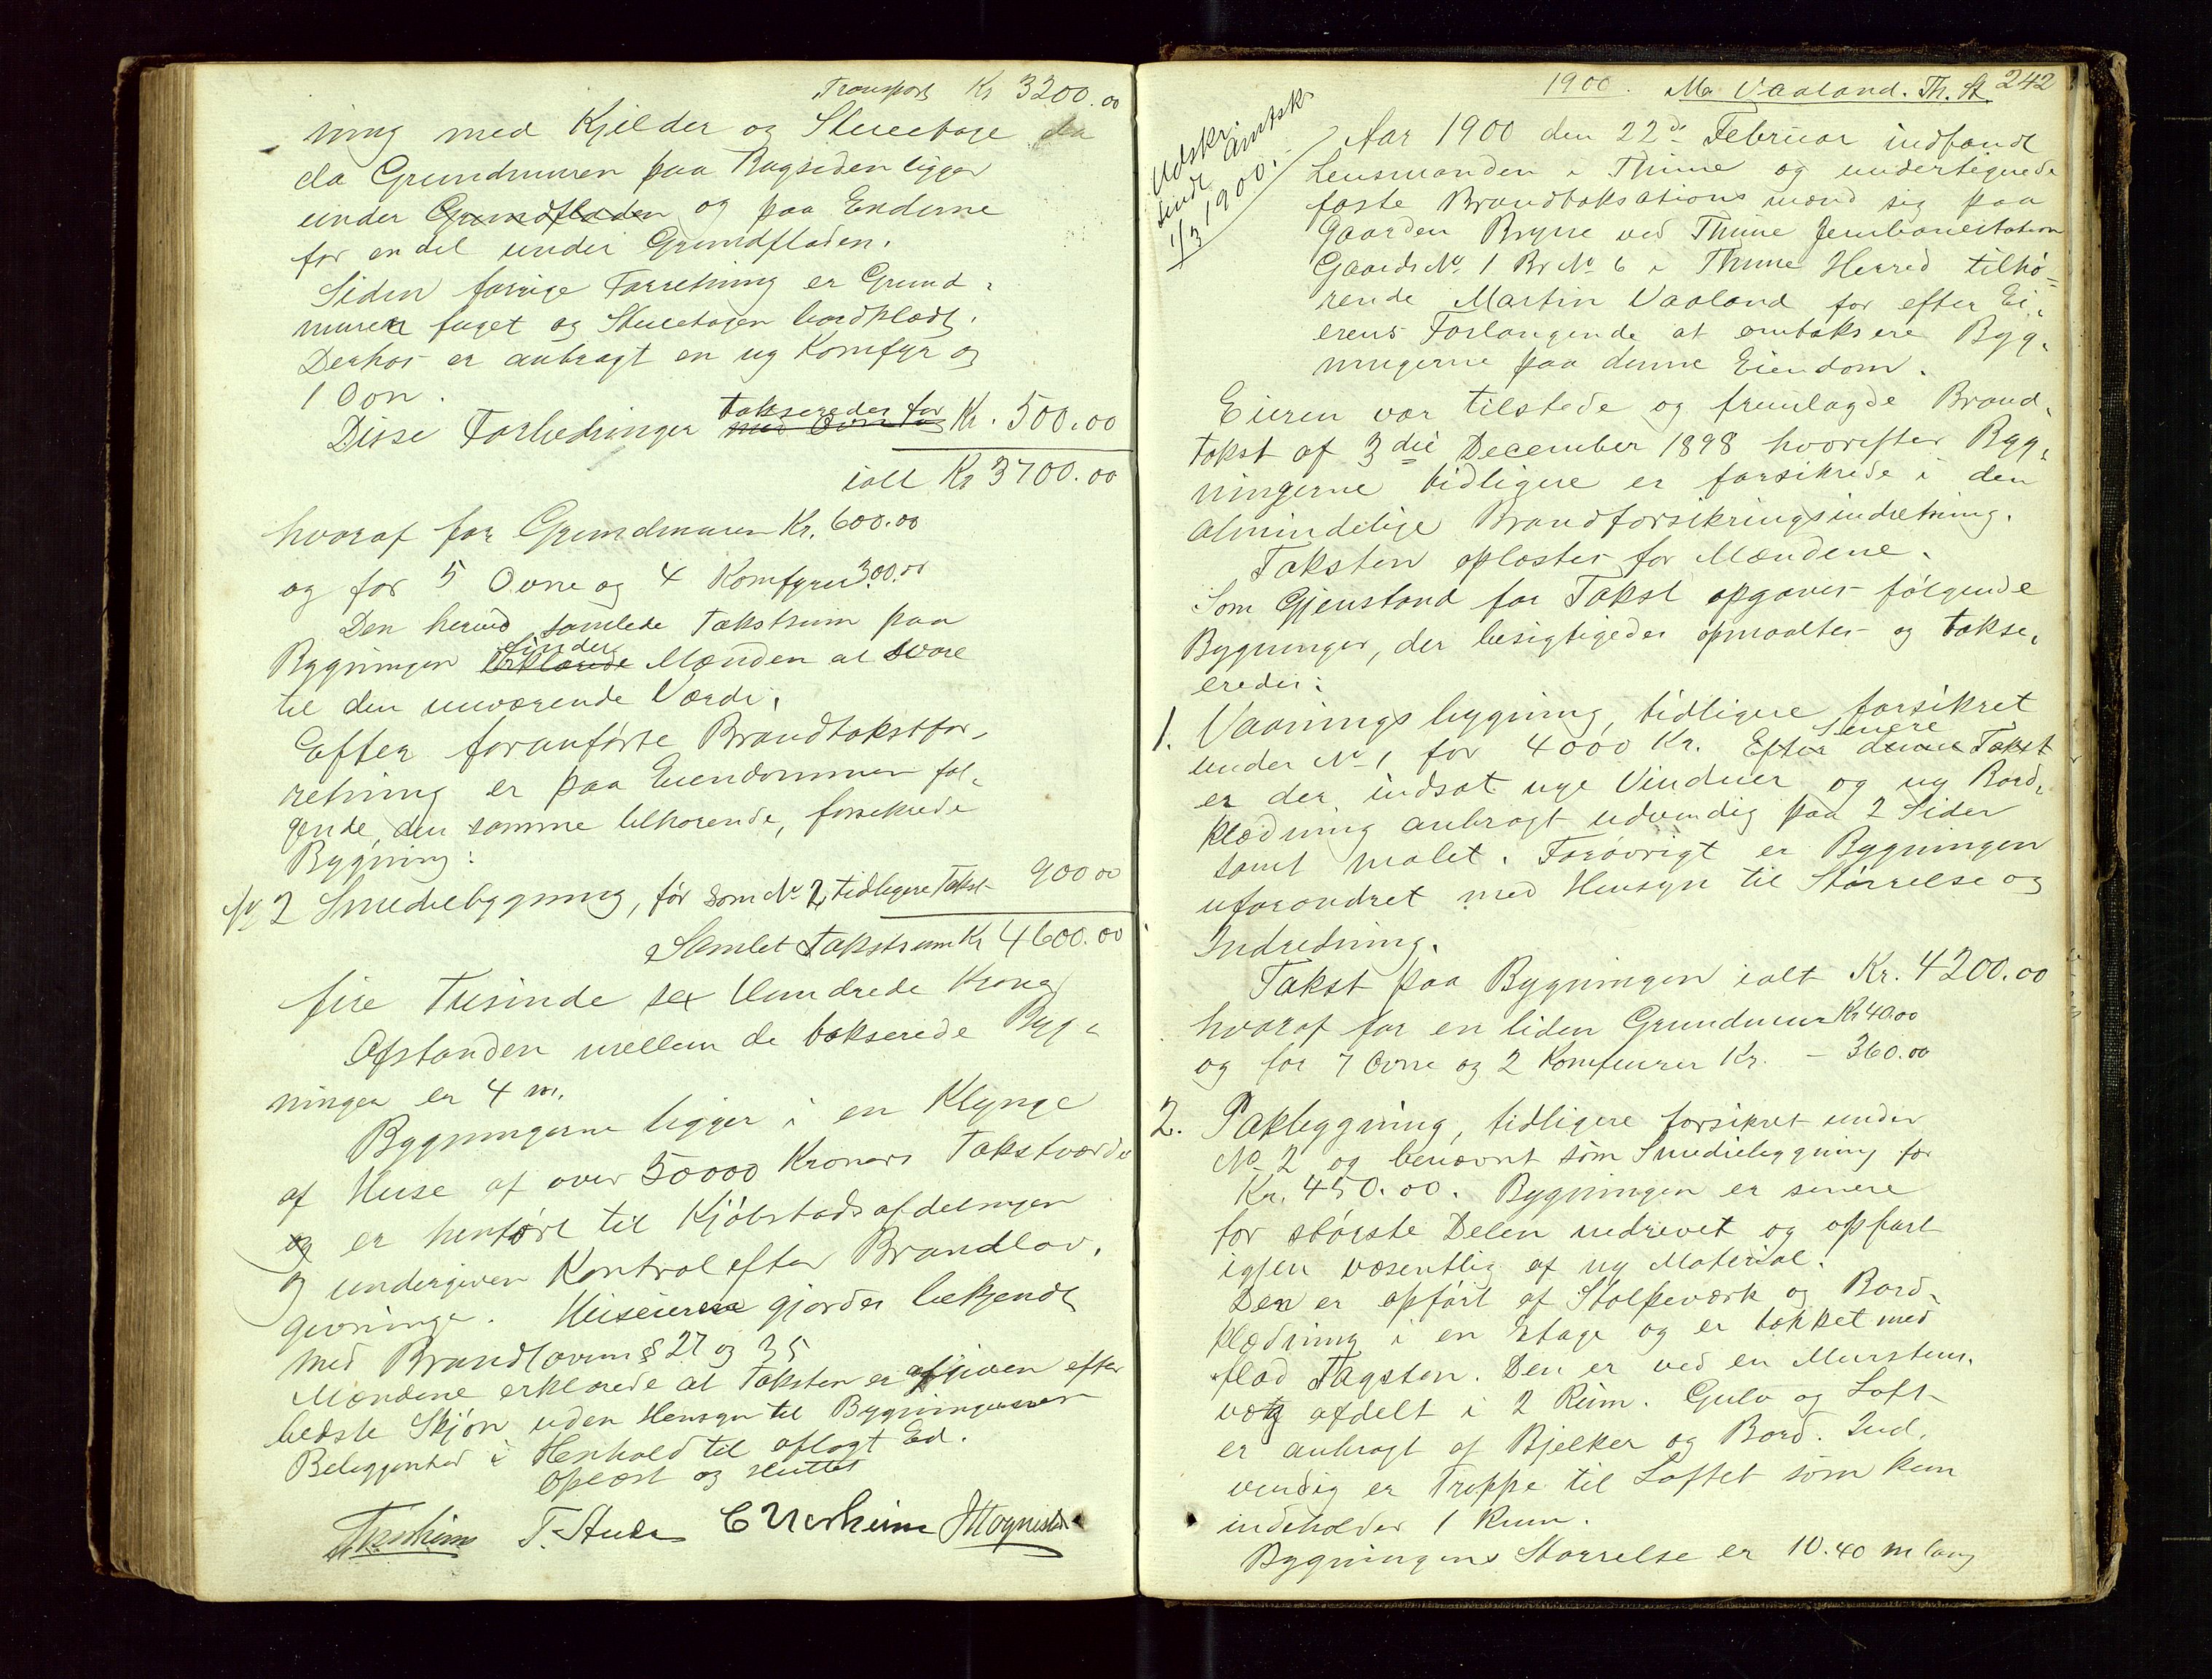 Transport Kr 3200.00
ning med Kjelder og Stueetage da
da Grundmuren paa Bagsiden ligger
under Grundfladen og paa Enderne
for en del under Grundfladen.
Siden forrige Forretning er Grund-
muren fuget og Stueetagen bordklædt.
Derhos er anbragt en ny Komfyr og
1 Ovn.
Disse Forbedringer takseredes for Kr. 500.00
ialt Kr 3700.00
hvoraf for Grundmuren Kr. 600.00
og for 5 Ovne og 4 Komfyrer 300.00
Den herved samlede Takstsum paa
Bygningen finder erklærede Mænden at svare
til den nuværende Værdi.
Efter foranførte Brandtakstfor-
retning er paa Eiendommen føl-
gende, den samme tilhørende, forsikrede
Bygning:
No 2 Smediebygning, før som No 2, tidligere Takst 900 00
Samlet Takstsum Kr 4600.00
fire Tusinde sex Hundrede Kroner
Afstanden mellem de takserede Byg-
ninger er 4 m.
Bygningerne ligger i en Klynge
af Huse af over 50000 Kroners Takstværdi
og er henført til Kjøbstadsafdelingen
og undergiven Kontrol efter Brandlov-
givninge. Huseieren gjordes bekjendt
med Brandloven § 27 og 35
Mændene erklærede at Taksten er afgiven efter
bedste Skjøn uden Hensyn til Bygningernes
Beliggenhed i Henhold til aflagt Ed.
Oplæst og sluttet
T. Aude C Nærheim
1900. M. Vaaland. Th. St. 242
Udskr.
sendt Amtsk.
1/3 1900.
Aar 1900 den 22de Februar indfandt
Lensmanden i Thime og undertegnede
faste Brandtaksationsmænd sig paa
Gaarden Bryne ved Thime Jernbanestation
Gaards No 1 Br No 6 i Thime Herred tilhø-
rende Martin Vaaland for efter Ei-
erens Forlangende at omtaksere Byg-
ningerne paa denne Eiendom.
Eieren var tilstede og fremlagde Brand-
takst af 3die December 1898 hvorefter Byg-
ningerne tidligere er forsikrede i den
almindelige Brandforsikringsindretning.
Taksten oplæstes for Mændene.
Som Gjenstand for Takst opgaves følgende
Bygninger, der besigtigedes opmaaltes og takse-
redes:
1. Vaaningsbygning, tidligere forsikret
under No 1 for 4000 Kr. Efter denne Senere Takst
er der indsat nye Vinduer og ny Bord-
klædning anbragt udvendig paa 2 Sider
samt malet. Forøvrigt er Bygningen
uforandret med Hensyn til Størrelse og
Indredning.
Takst paa Bygningen ialt Kr. 4200.00
hvoraf for en liden Grundmur Kr 40.00
og for 7 Ovne og 2 Komfeurer Kr. - 360.00
2. Pakbygning, tidligere forsikret under
No 2 og benævnt som Smediebygning for
Kr. 450.00. Bygningen er senere
for største Delen nedrevet og opført
igjen væsentlig af ny Material.
Den er opført af Stolpeværk og Bord-
klædning i en Etage og er takket med
flad Tagsten. Den er ved en Murstens-
væg afdelt i 2 Rum. Gulv og Loft
er anbragt af Bjelker og Bord. Ind-
vendig er Trappe til Loftet som kun
indeholder 1 Rum.
Bygningens Størrelse er 10.40 m lang